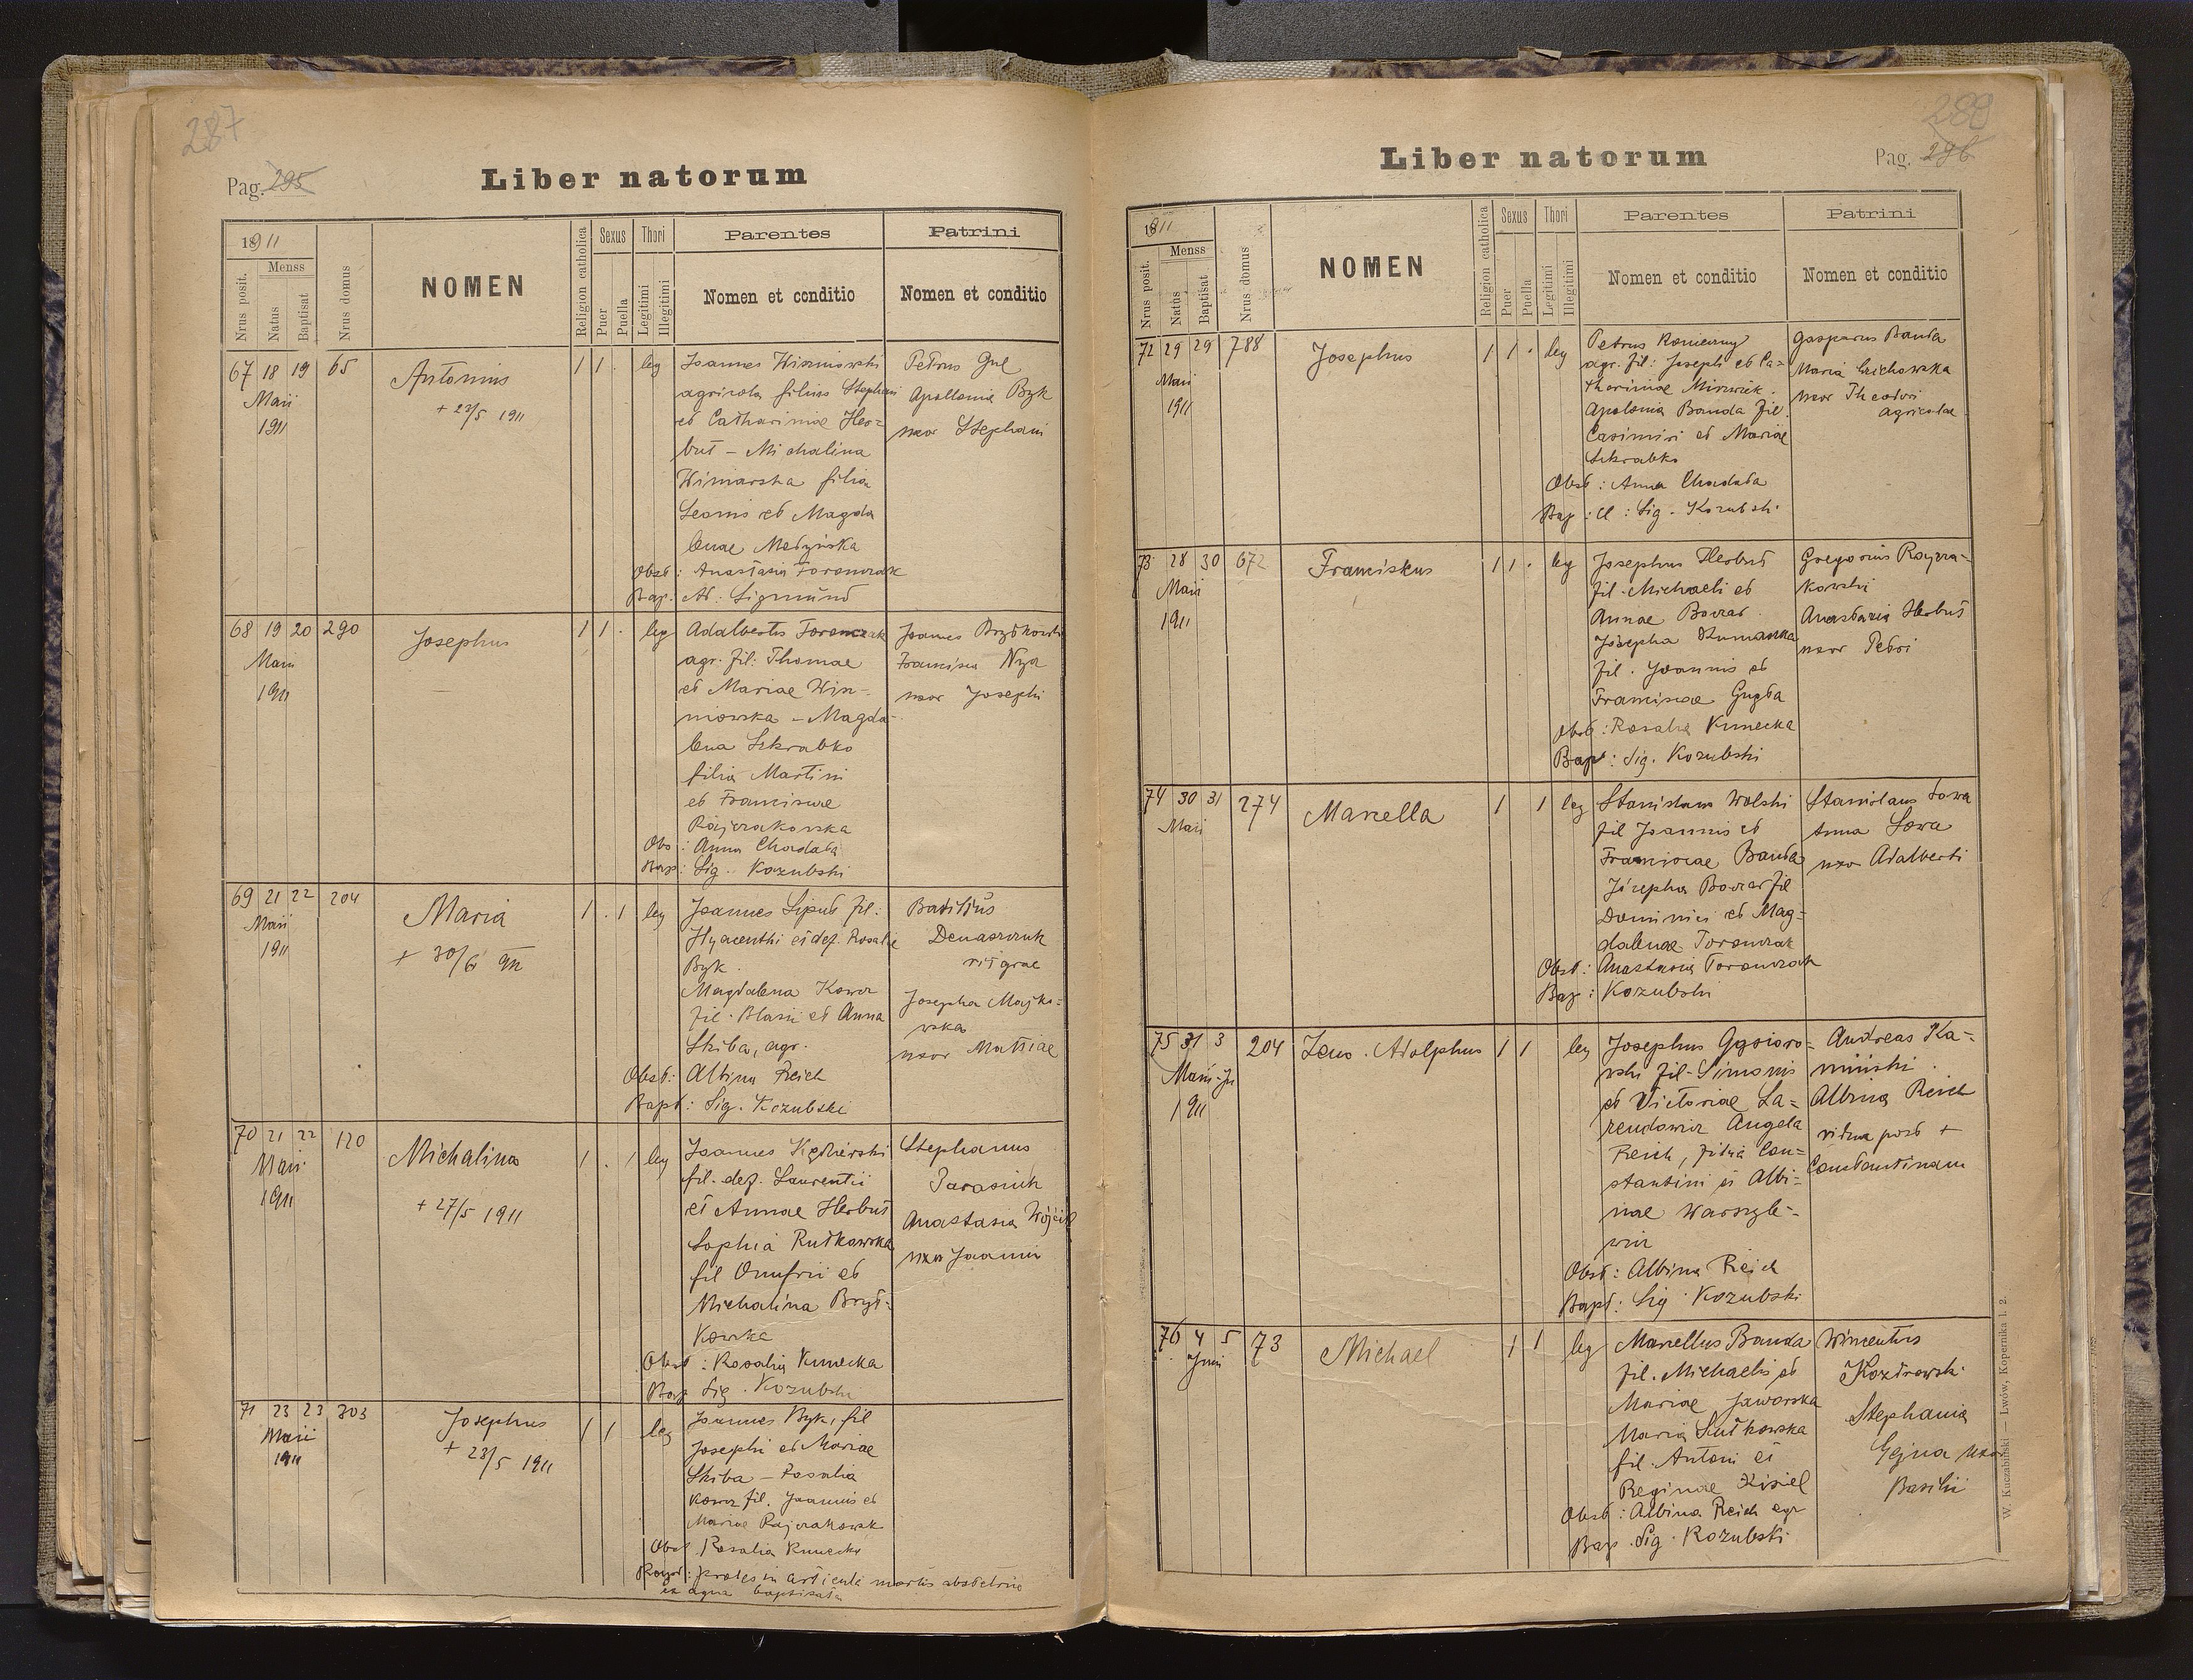 287
Pag. 295
Liber natorum
1911
Nrus posit.
Menss
Natus
Baptisat
Nrus domus
NOMEN
Religion catholica
Sexus
Puer
Puella
Thori
Legitimi
Illegitimi
Parentes
Nomen et conditio
Patrini
Nomen et conditio
67 18 19 65
Maii
1911
Antonius
+ 23/5 1911
1 1 . leg
Joannes Wiśniowski
agricola filius Stephani
et Catharinae Her=
but - Michalina
Winiarska filia
Leonis et Magda
lenae Medyńska
Obst: Anastasia Toronczak
Bap: Ad: Sigmund
Petrus Gul
Apollonia Byk
uxor Stephani
68 19 20 290
Maii
1911
Josephus
1 1 . leg
Adalbertus Toronczak
agr. fil: Thomae
et Mariae Wisz-
niowska - Magda-
lena Szkrabko
filia Martini
et Franciscae
Rajzakowska
Obs: Anna Chadaba
Bap: Sig. Kozubski
Joannes Brydkowski
Francisca
uxor Josephi
69 21 22 204
Maii
1911
Maria
+ 30/6 911
1 . 1 leg
Joannes Siput fil:
Hyacenthi et def. Rosalie
Byk.
Magdalena Kowcz
fil. Blasii et Anna
Skiba, agr.
Obst: Albina Reich
Bapt: Sig. Kozubski
Basilius
Denaszczuk
rit grae
Josepha Majko=
wska
uxor Matiae
70 21 22 120
Maii
1911
Michalina
+ 27/5 1911
1 . 1 leg
Joannes Kędzierski
fil. def. Laurentii
et Annae Herbut
Sophia Rutkowska
fil Onufrii et
Michalina Bryt-
kowska
Obst: Rosalia Kunecka
Bap Sig. Kozubski
Stephanus
Parasiuk
Anastasia Wójcik
uxor Joannis
71 23 23 303
Maii
1911
Josephus
+ 28/5 1911
1 1 leg
Joannes Byk, fil
Josephi et Mariae
Skiba - Rosalia
Kowcz fil. Joannis et
Mariae Rajzakowsk
Obst. Rosalia Kunecka
Bapt: proles in articulo mortis obstetrice
ex aqua baptisata
289
Pag. 296
Liber natorum
1911
Nrus posit.
Menss
Natus
Baptisat
Nrus domus
NOMEN
Religion catholica
Sexus
Puer
Puella
Thori
Legitimi
Illegitimi
Parentes
Nomen et conditio
Patrini
Nomen et conditio
72 29 29 788
Maii
1911
Josephus
1 1 . leg
Petrus Konierny
agr. fil: Josephi et Ca=
tharinae Mirowick.
Apolonia Banda fil.
Casimiri et Mariae
Szkrabko
Obst: Anna Chadaba
Bap: Sig. Kozubski
Gasparus Banda
Maria
uxor Theodori
agricolae
73 28 30 672
Maii
1911
Franciskus
1 1 . leg
Josephus Herbut
fil. Michaeli et
Annae Bowar.
Josepha Szumanska
fil. Joannis et
Franciscae Guzda
Obst: Rosalia Kunecka
Bapt: Sig. Kozubski
Gregorius Rajza-
kowski
Anastazia Herbut
uxor Petri
74 30 31 274
Maii
Marcella
1 1 leg
Stanislaus Wolski
fil Joannis et
Franciscae Banda
Józepha Bowar fil
Dominici et Mag=
dalenae Toronczak
Obst: Anastasia Toronczak
Bap: Kozubski
Stanislaus Sowa
Anna Sowa
uxor Adalberti
75 31 3 204
Maii-Ju
1911
Zeno. Adolphus
1 1 leg
Josephus Gąsioro=
wski fil. Simonis
et Victoriae La=
rendowicz Angela
Reich, filia Con=
stantini et Albi=
nae Warszyle-
wicz
Obst: Albina Reich
Bapt: Sig Kozubski
Andreas Ka=
miński.
Albina Reich
vidua post +
Constantinum
76 4 5 73
Juni
Michael
1 1 leg
Marcellus Banda
fil. Michaelis et
Mariae Jaworska
Maria Sutkowska
fil. Antoni et
Reginae Kisiel
Obst: Albina Reich agr
Bap. Sig. Kozubski
Wincentus
Kozdrowski
Stephania
Gejna uxor
Basilii
W. Kuczabiński — Lwów, Kopernika l. 2.